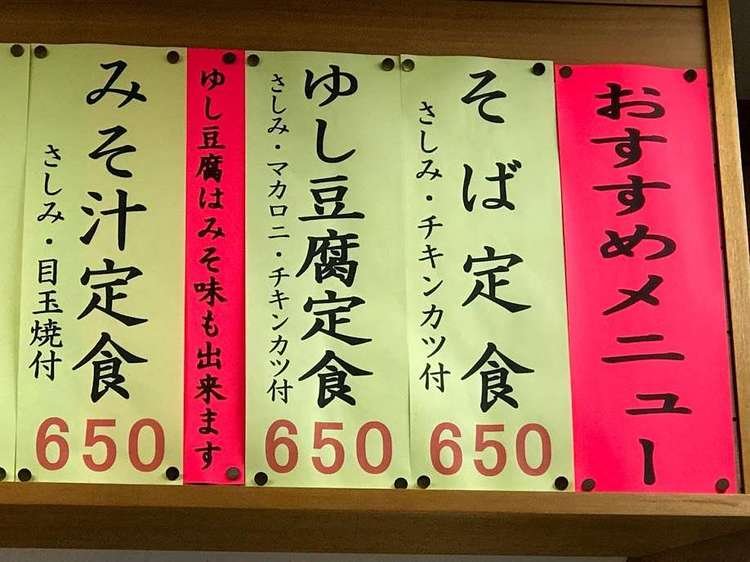 おすすめメニュー
そば定食
さしみ・チキンカツ付
650
ゆし豆腐定食
さしみ・マカロニ・チキンカツ付
650
ゆし豆腐はみそ味も出来ます
みそ汁定食
さしみ・目玉焼付
650